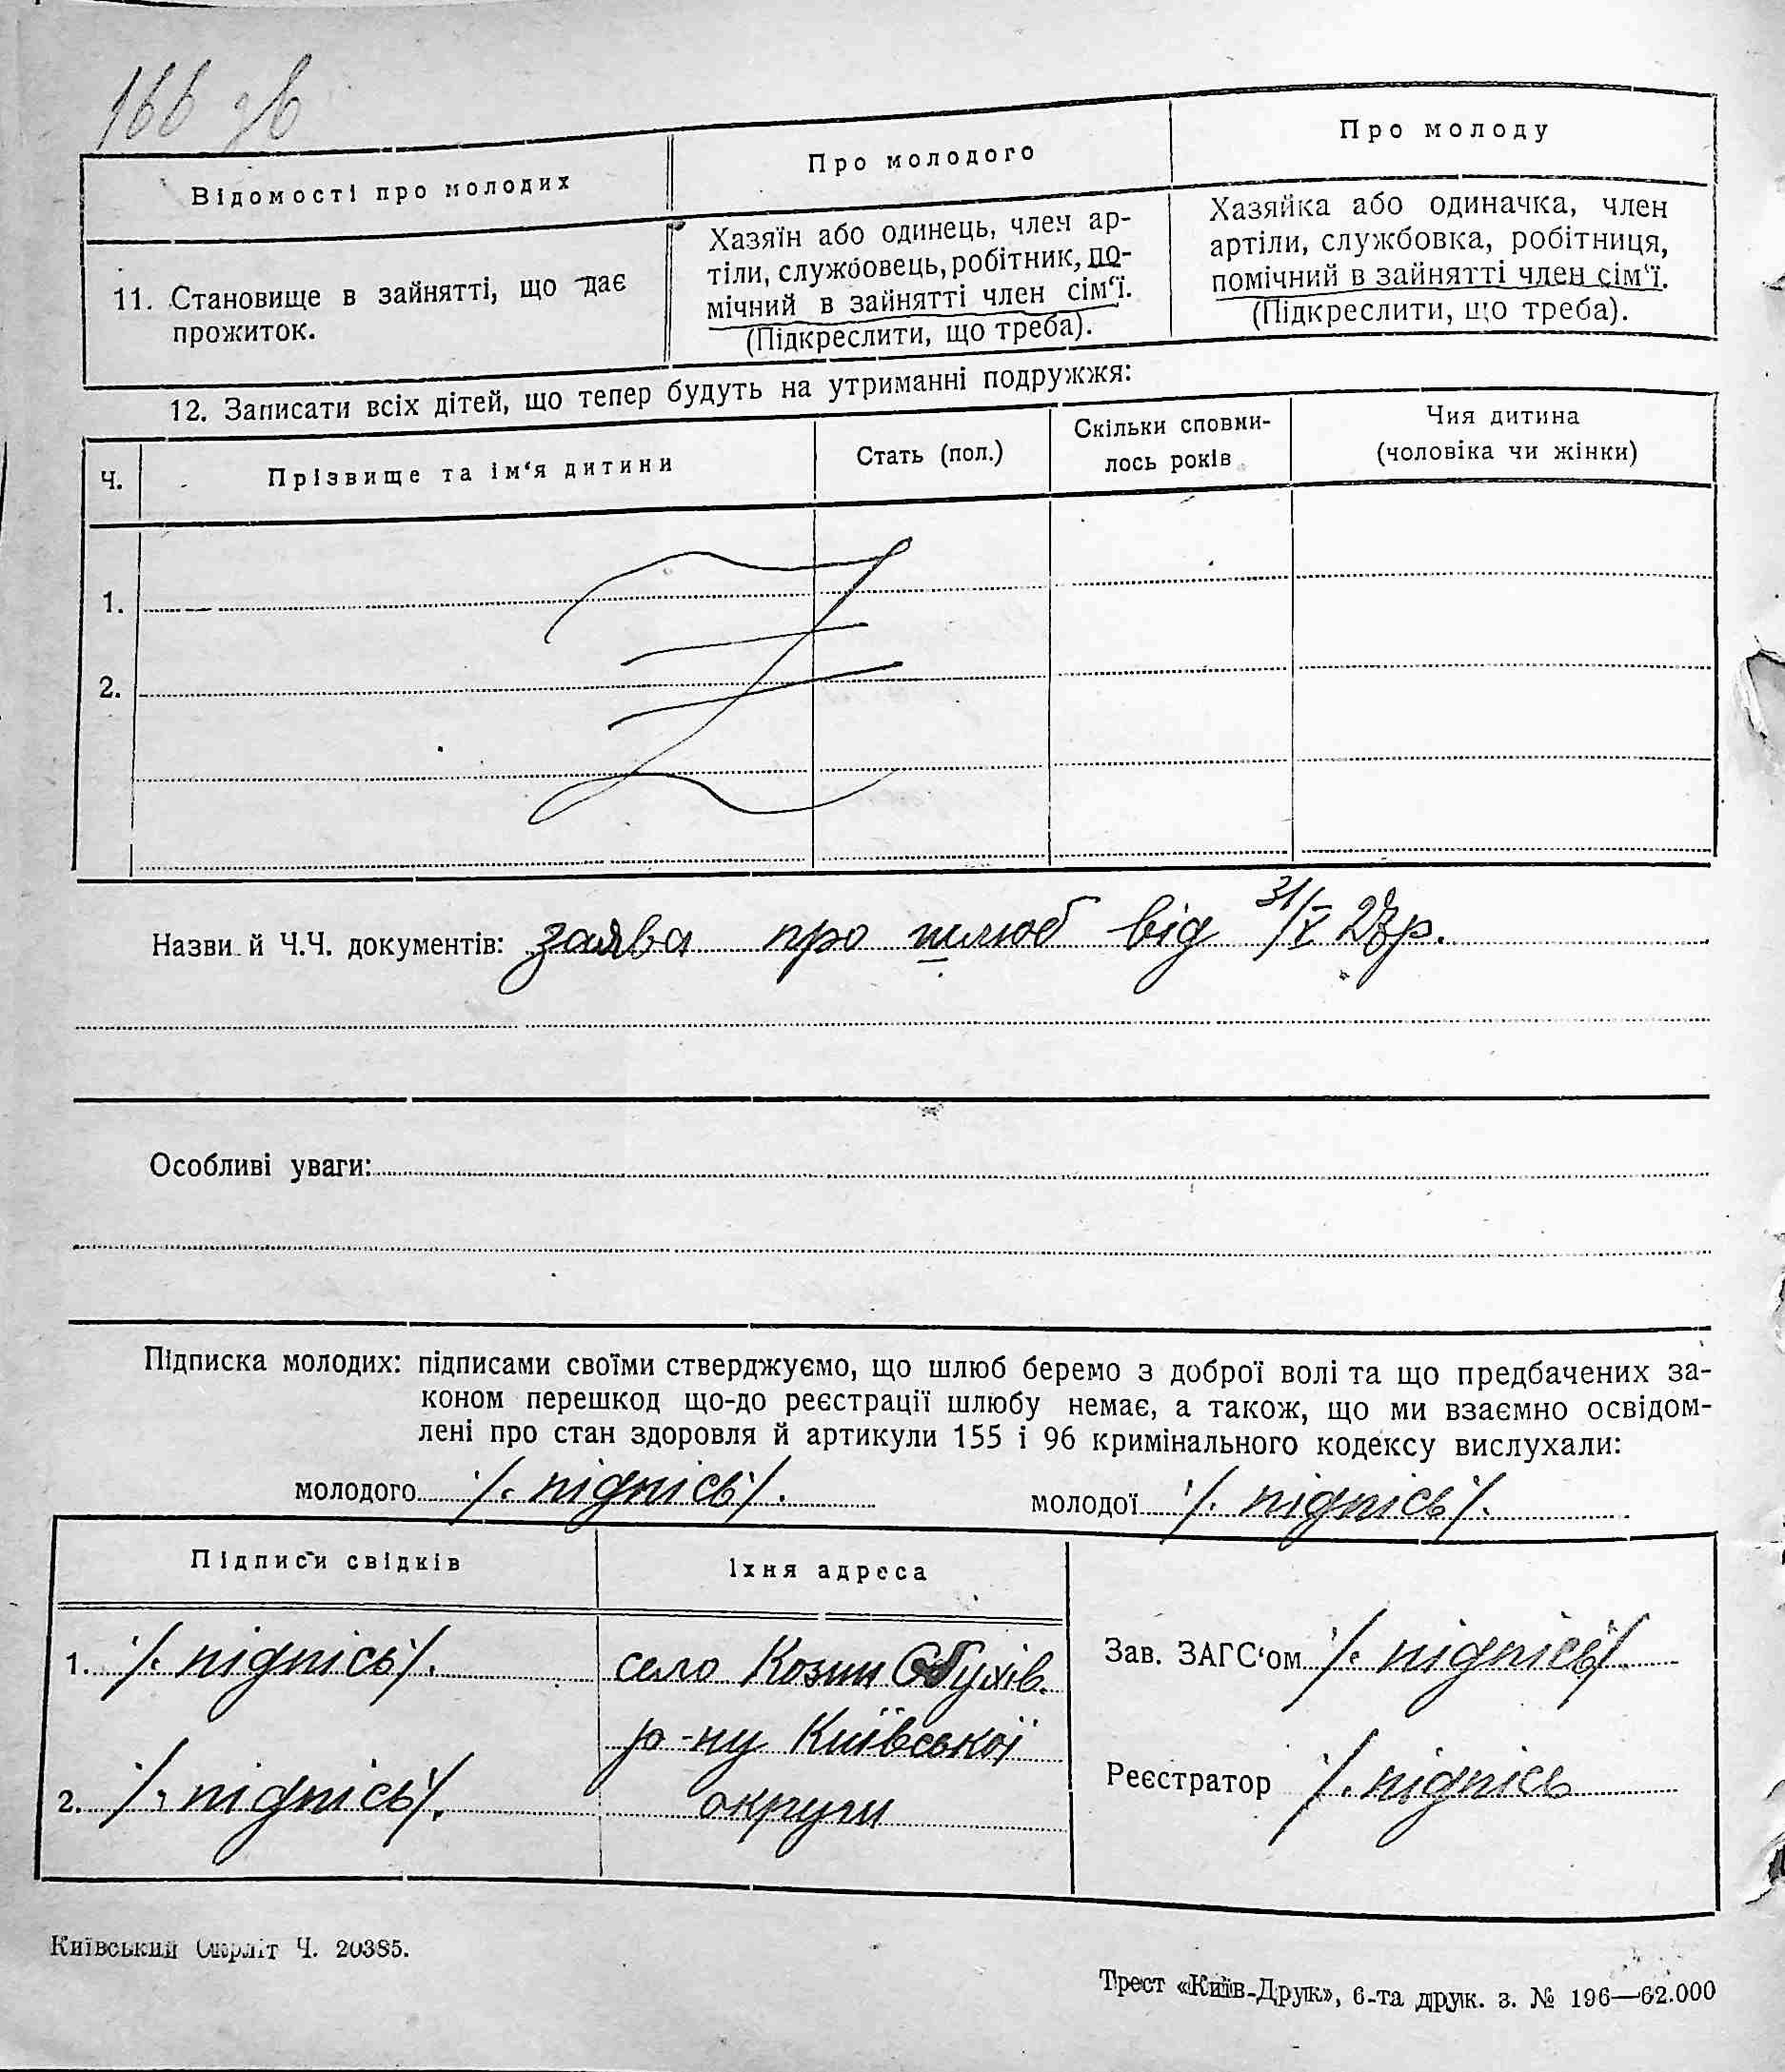 166 зв
Відомості про молодих
Про молодого
Про молоду
11. Становище в зайнятті, що дає
прожиток.
Хазяїн або одинець, член ар-
тіли, службовець, робітник, по-
мічний в зайнятті член сім‘ї.
(Підкреслити, що треба).
Хазяйка або одиначка, член
артіли, службовка, робітниця,
помічний в зайнятті член сім‘ї.
(Підкреслити, що треба).
12. Записати всіх дітей, що тепер будуть на утриманні подружжя:
Ч.
Прізвище та ім‘я дитини
Стать (пол.)
Скільки сповни-
лось років
Чия дитина
(чоловіка чи жінки)
1.
2.
Назви й Ч.Ч. документів: заява про шлюб від 31/V 27р.
Особливі уваги:
Підписка молодих: підписами своїми стверджуємо, що шлюб беремо з доброї волі та що предбачених за-
коном перешкод що-до реєстрації шлюбу немає, а також, що ми взаємно освідом-
лені про стан здоровля й артикули 155 і 96 кримінального кодексу вислухали:
молодого /. підпісь/.
молодої /. підпісь/.
Підписи свідків
Їхня адреса
1. /. підпісь/.
село Козин Обухів.
р-ну Київської
2. /. підпісь/.
округи
Зав. ЗАГС‘ом /. підпісь/.
Реєстратор /. підпісь
Київський Окрліт Ч. 20385.
Трест «Київ-Друк», 6-та друк. з. № 196—62.000